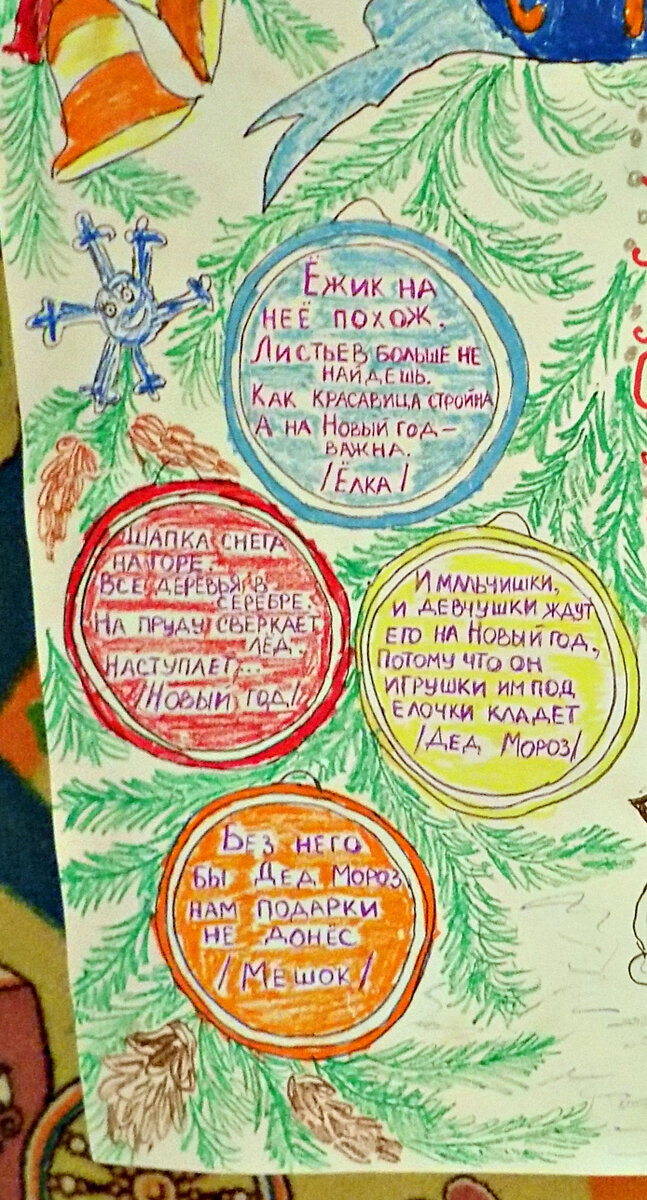 Ёжик на
неё похож.
Листьев больше не
найдешь.
Как красавица стройна
А на Новый год –
важна.
/Ёлка/
Шапка снега
на горе.
Все деревья в
серебре.
На пруду сверкает
лёд.
Наступает...
/Новый год/
И мальчишки,
и девчушки ждут
его на Новый год,
потому что он
игрушки им под
ёлочки кладет
/Дед Мороз/
Без него
бы Дед Мороз
нам подарки
не донёс
/Мешок/